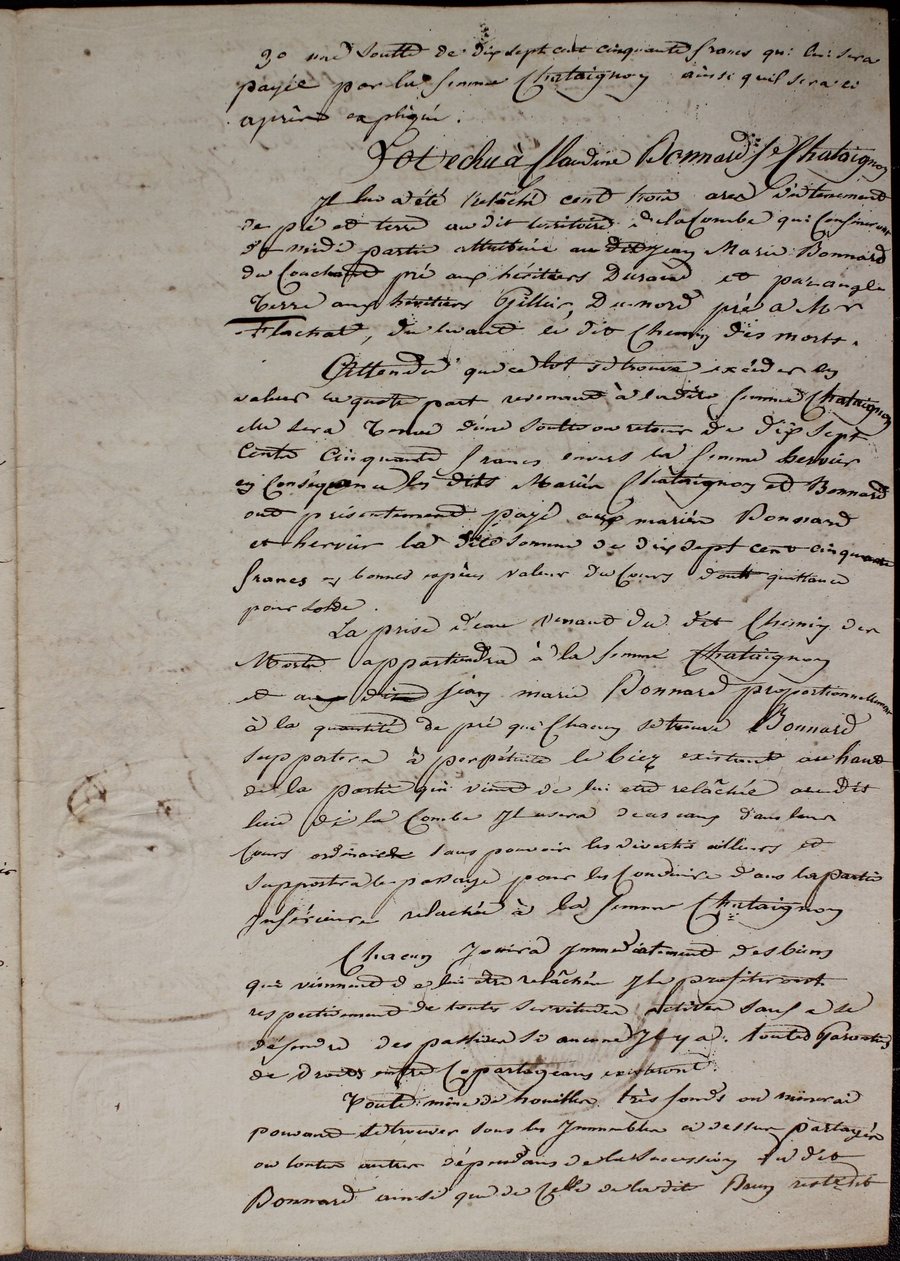 3o une Soulte de dix sept cent cinquante francs qui lui sera
payée par la femme Chataignon ainsi quil sera ci
après expliqué.
Lot echu à Claudine Bonnard fe Chataignon
Il lui a été relâché cent trois ares d'un tenement
de pré et terre au dit territoire de la Combe qui Confine
de midi partie attribuée au dit Jean Marie Bonnard
du Couchant pré aux héritiers Durand et par angle
terre aux héritiers Gillier, Du nord pré a Mr
Flachat, du levant le dit Chemin des morts.
Attendu que ce lot se trouve excéder en
valeur la quote part revenant à la dite femme Chataignon
elle sera tenue d'une Soulte ou retour de dix sept
cents cinquante francs envers la femme hervier
en Conséquence les dits Mariés Chataignon et Bonnard
ont présentement payé aux mariés Bonnard
et hervier la dite Somme de dix sept cent cinquante
francs en bonnes espèces valeur du Cours dont quittance
pour Solde.
La prise d'eau venant du dit Chemin des
Morts appartiendra à la femme Chataignon
et au dit Jean marie Bonnard proportionnellement
à la quantité de pré que Chacun se trouve Bonnard
Supportera à perpétuité le biez existant au haut
de la partie qui vient de lui etre relâchée au dit
lieu de la Combe Il usera de ces eaux dans leur
Cours ordinaire sans pouvoir les divertir ailleurs et
Supportra le passage pour les Conduire dans la partie
Inférieure relachée à la femme Chataignon
Chacun Jouira Immédiatement des biens
qui viennent de lui etre relâchés Ils profiteront
respectivement de toutes Servitudes actives sauf a se
défendre des passives Si aucune Il y a. toutes Garanties
de droits entre Copartageans existeront.
Toute mine de houilles très fonds ou minerai
pouvant se trouver sous les Immeubles ci dessus partagés
ou toutes autres dépendans de la Succession du dit
Bonnard ainsi que de Celle de la dite Brun reste dit